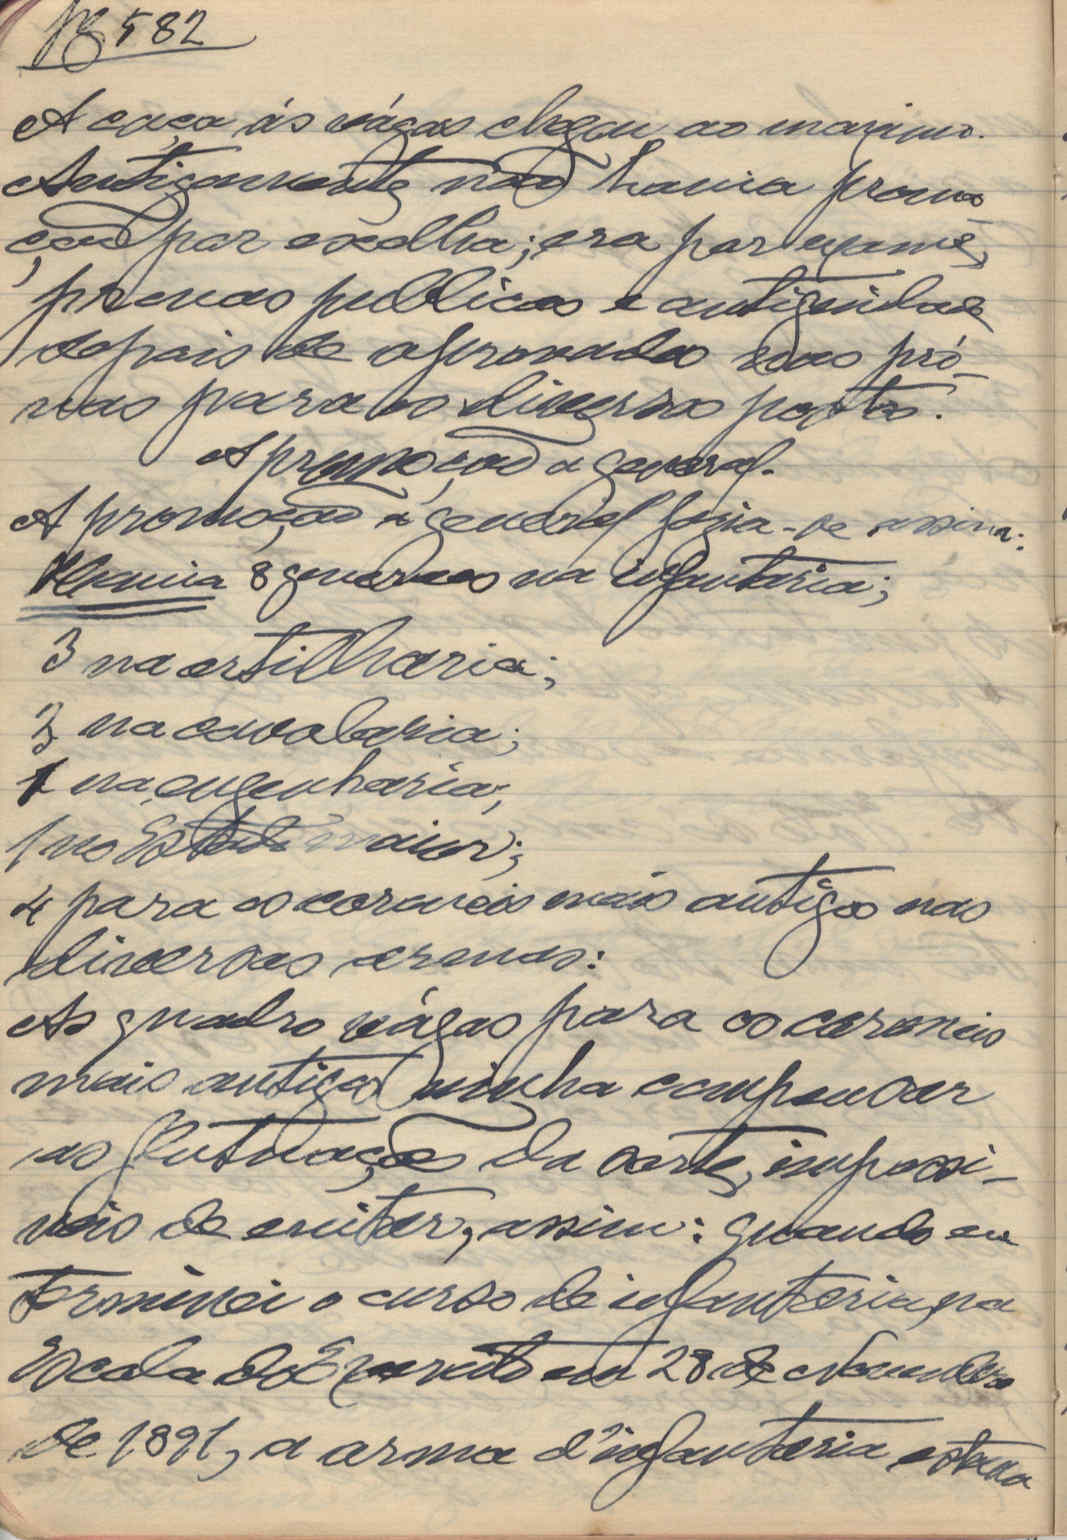 Pg 582
A caça ás vágas chegou ao maximo.
Antigamente não havia promo
ção por escolha; era por exame,
provas publicas e antiguidade
depois de aprovados nas pró-
vas para os diversos postos.
A promoção a general.
A promoção a general fazia-se assim:
Havia 8 generaes na infantaria;
3 na artilharia;
3 na cavalaria;
1 na engenharia;
1 no Estado maior;
4 para os coroneis mais antigos nas
diversas armas:
As quadro vágas para os coroneis
mais antigos vinha compensar
as flutuações da sorte, impossi-
veis de evitar, assim: quando eu
terminei o curso de infantaria, na
Escola do Exercito em 28 de Novembro
de 1891, a arma d'infantaria estava